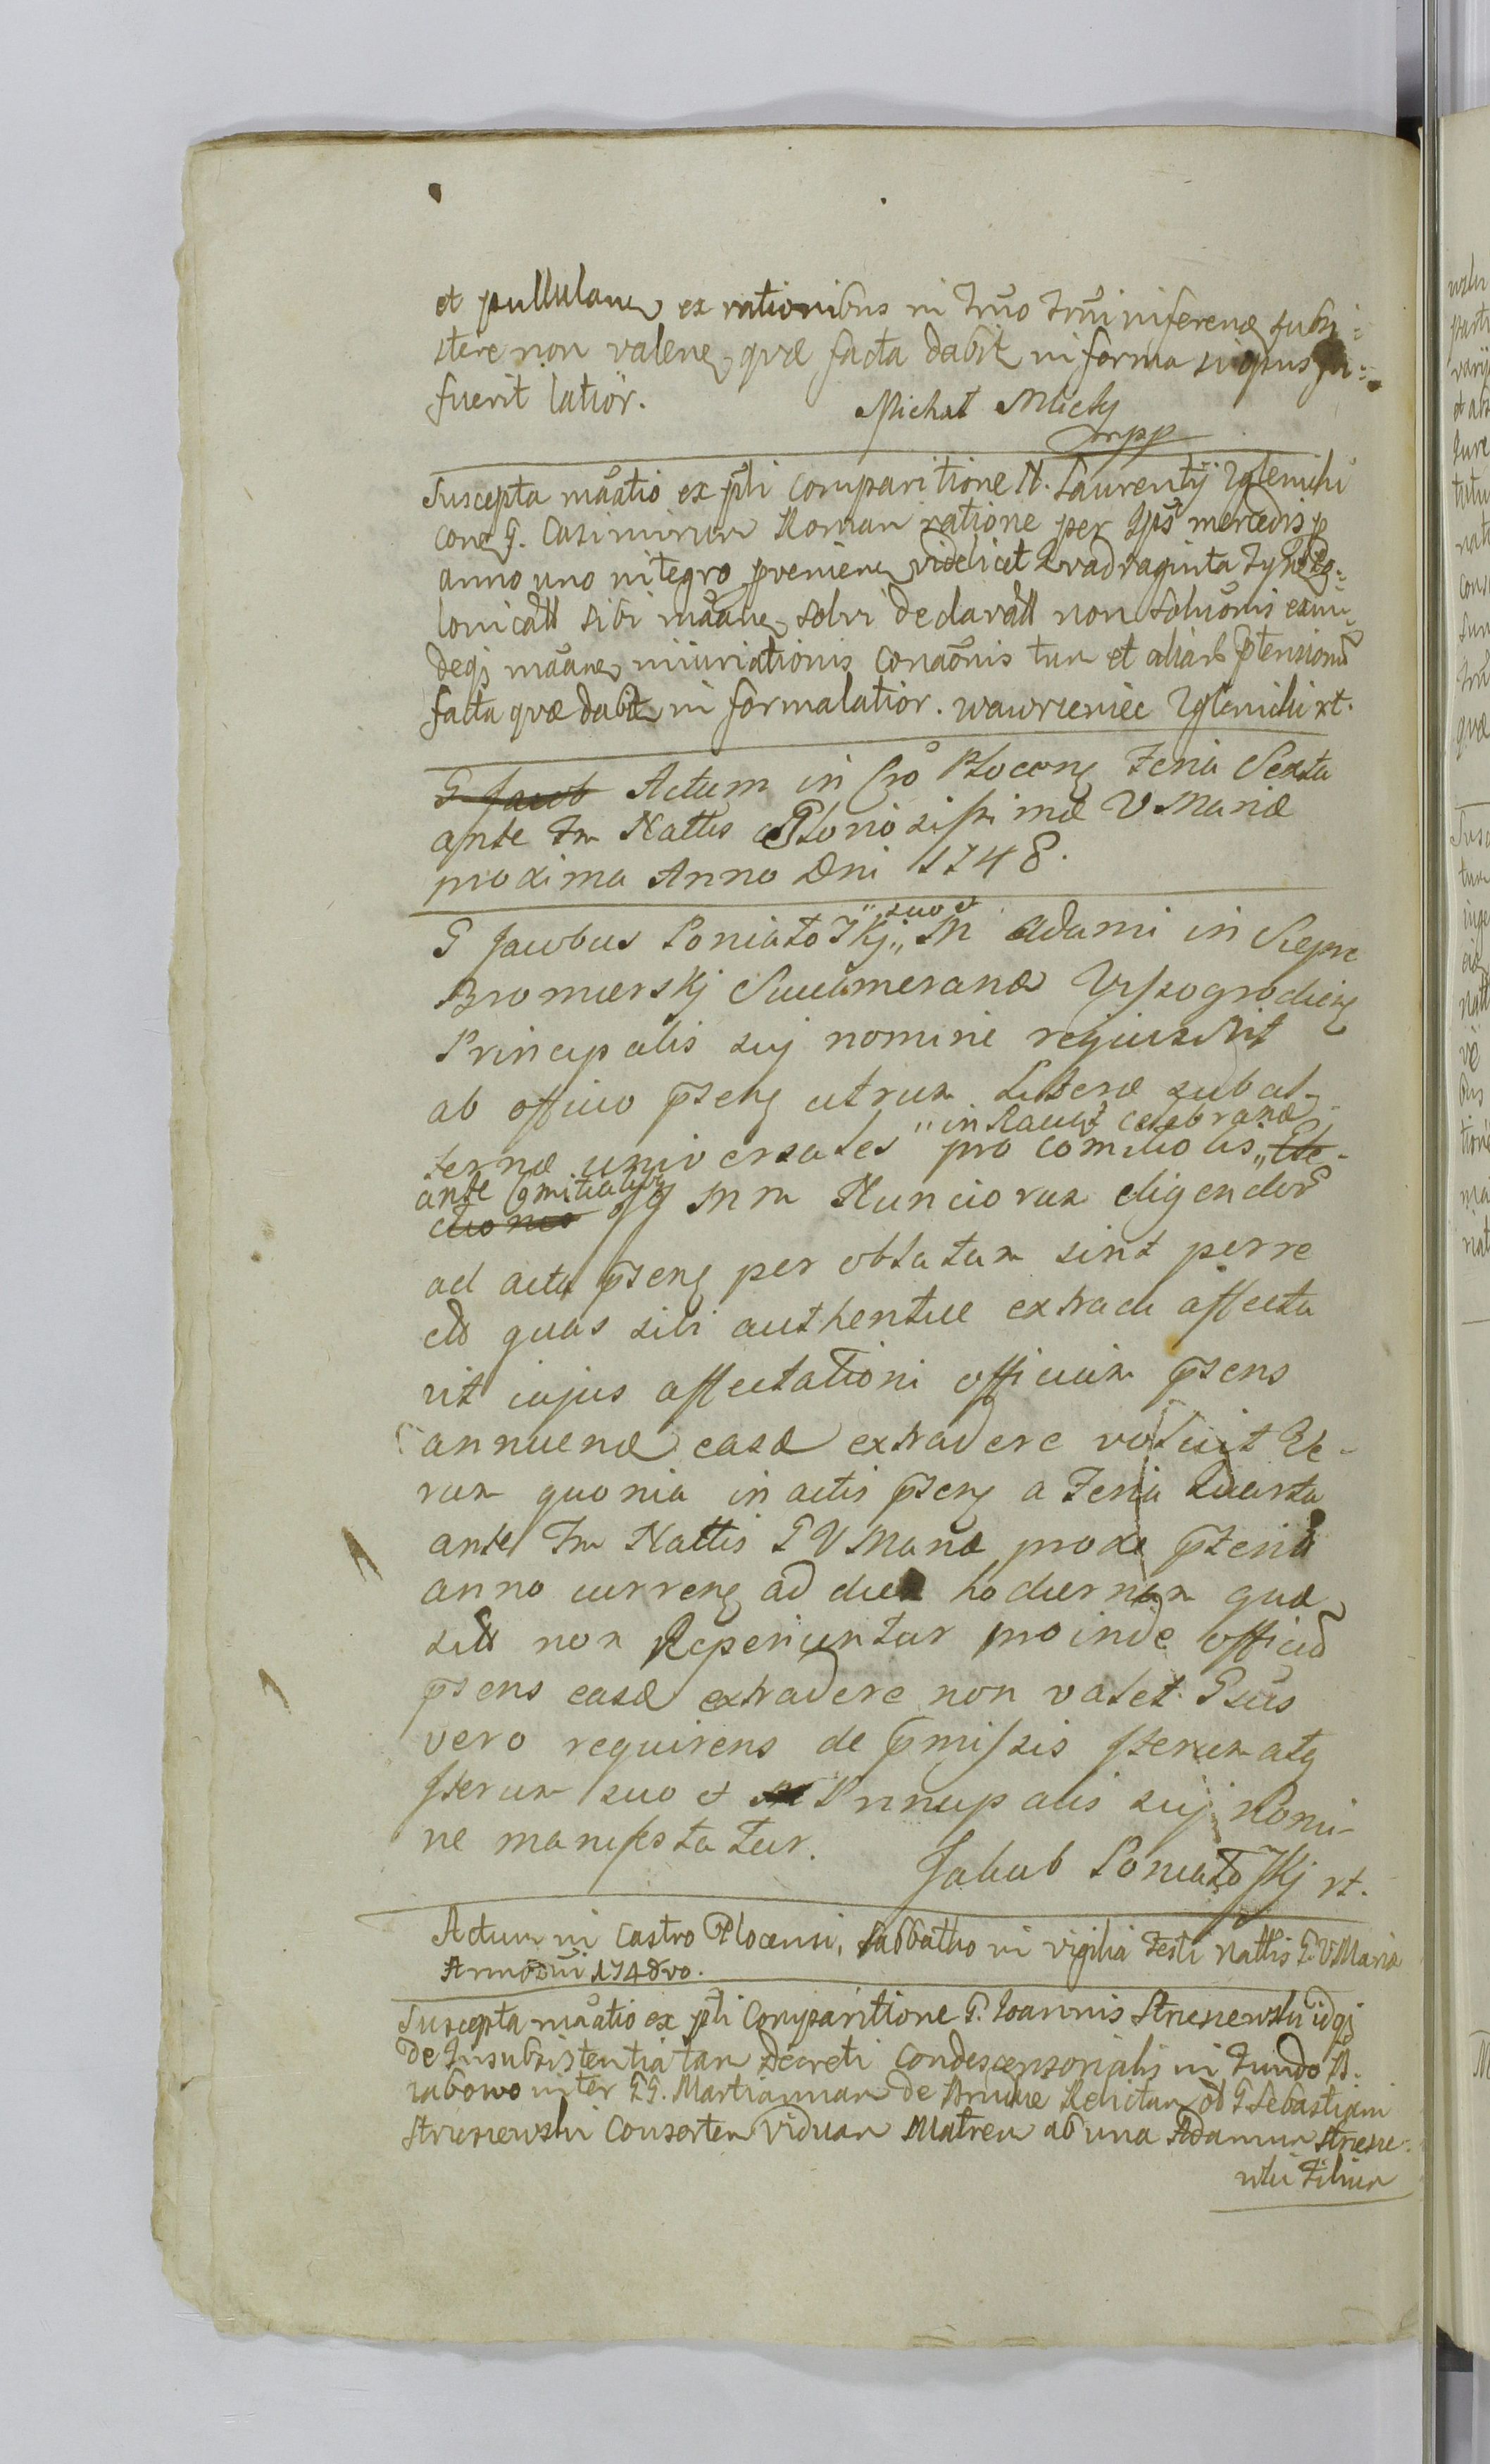 et pullulane ex rationibus in Trno Trni inferenẹ subsi=
stere non valene, quæ facta dabit in forma si opus fu=
fuerit latior. Michał
mpp
Suscepta mãatio ex pti Comparitione N. Laurentij Zglenicki
con G. Casimirum Roman ratione per Ips mercedis p
anno uno integro proveniene videlicet Qvadraginta Tynf
loni sibi mãane solvi declarat non soluõnis eaun
deqj mãane iniuriationis conaõnis tum et aliar ptensionũ
facta quæ dabit in forma latior. Wawrzeniec Zglenicki xt.
G Jacob Actum in Cro Plocens Feria Sexta
ante Fm Nattis Gloriosissimæ V Mariæ
proxima Anno Dni 1748.
G Jacobus Poniatoskj „suo et „M Adami in Sieprc
Bromierskj Succameranæ Vyssogrodiens
Principalis suj nomine requisivit
ab officio psens utrum Literæ subal-
ternæ universales pro comitiolis „in Raciąż celebranæ „Ele-
ctiones ante Comitialib GG MM Nunciorum eligendor
ad acta psens per oblatam sint porre
ctæ quas sibi authentice extradi affecta
vit cujus affectationi officium psens
annuenæ easd extradere voluit Ve-
rum quonia in actis psens a Feria Quarta
ante Fm Nattis G V Mariæ proxe pteriti
anno currens ad diem hodiernam quæ
sitæ non Reperiuntur proinde officiũ
psens easd extradere non valet. Gsus
vero requirens de pmissis Iterum atq
Iterum suo et Principalis suj Nomi-
ne manifestatur. Jakub Poniatoskj xt.
Actum in Castro Plocensi, Sabbatho in vigilia Festi Nattis G. V Mariæ
Anno Dni 1748vo.
Suscepta mãatio ex pti Comparitione G. Ioannis Strzeszewski idqj
de Insubsistentia tam Decreti Condescensorialis in Fundo B=
rabowo inter GG. Martiannam de Relictam ol G Sebastiani
Strzeszewski Consortem Viduam Matrem ab una Adamum Strzesze=
wski Filium